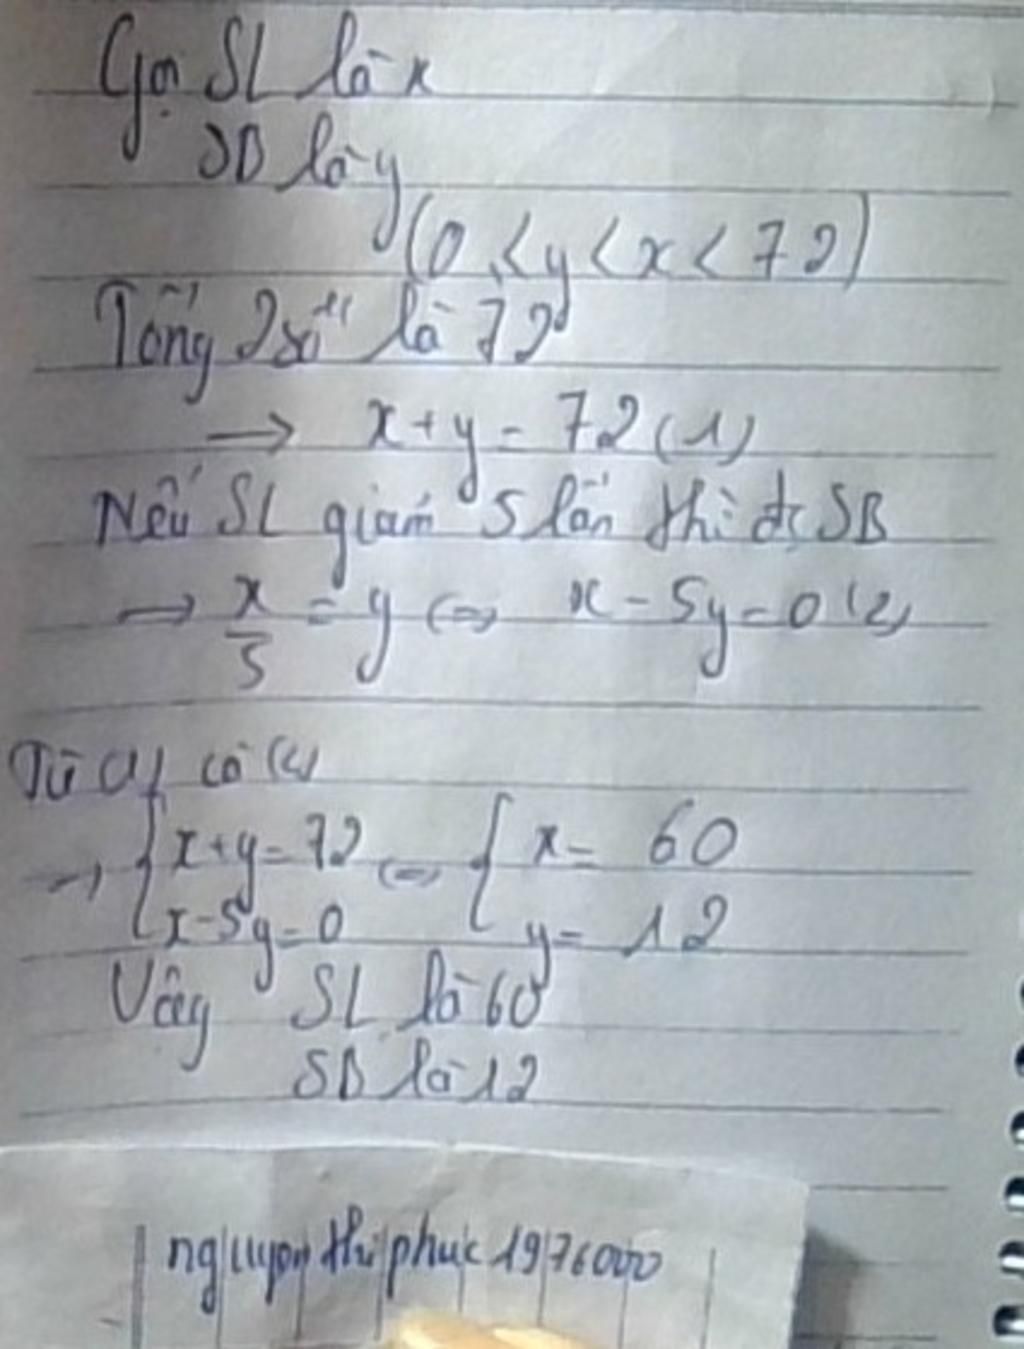 Gọi SL là x
SB là y
(0 < y < x < 72)
Tổng 2 số là 72
→ x + y = 72 (1)
Nếu SL giảm 5 lần thì đc SB
→ x/5 = y ⇔ x - 5y = 0 (2)
Từ (1) có (2)
→ { x + y = 72 ⇔ { x = 60
x - 5y = 0 y = 12
Vậy SL là 60
SB là 12
nguyen thi phuc 1976000